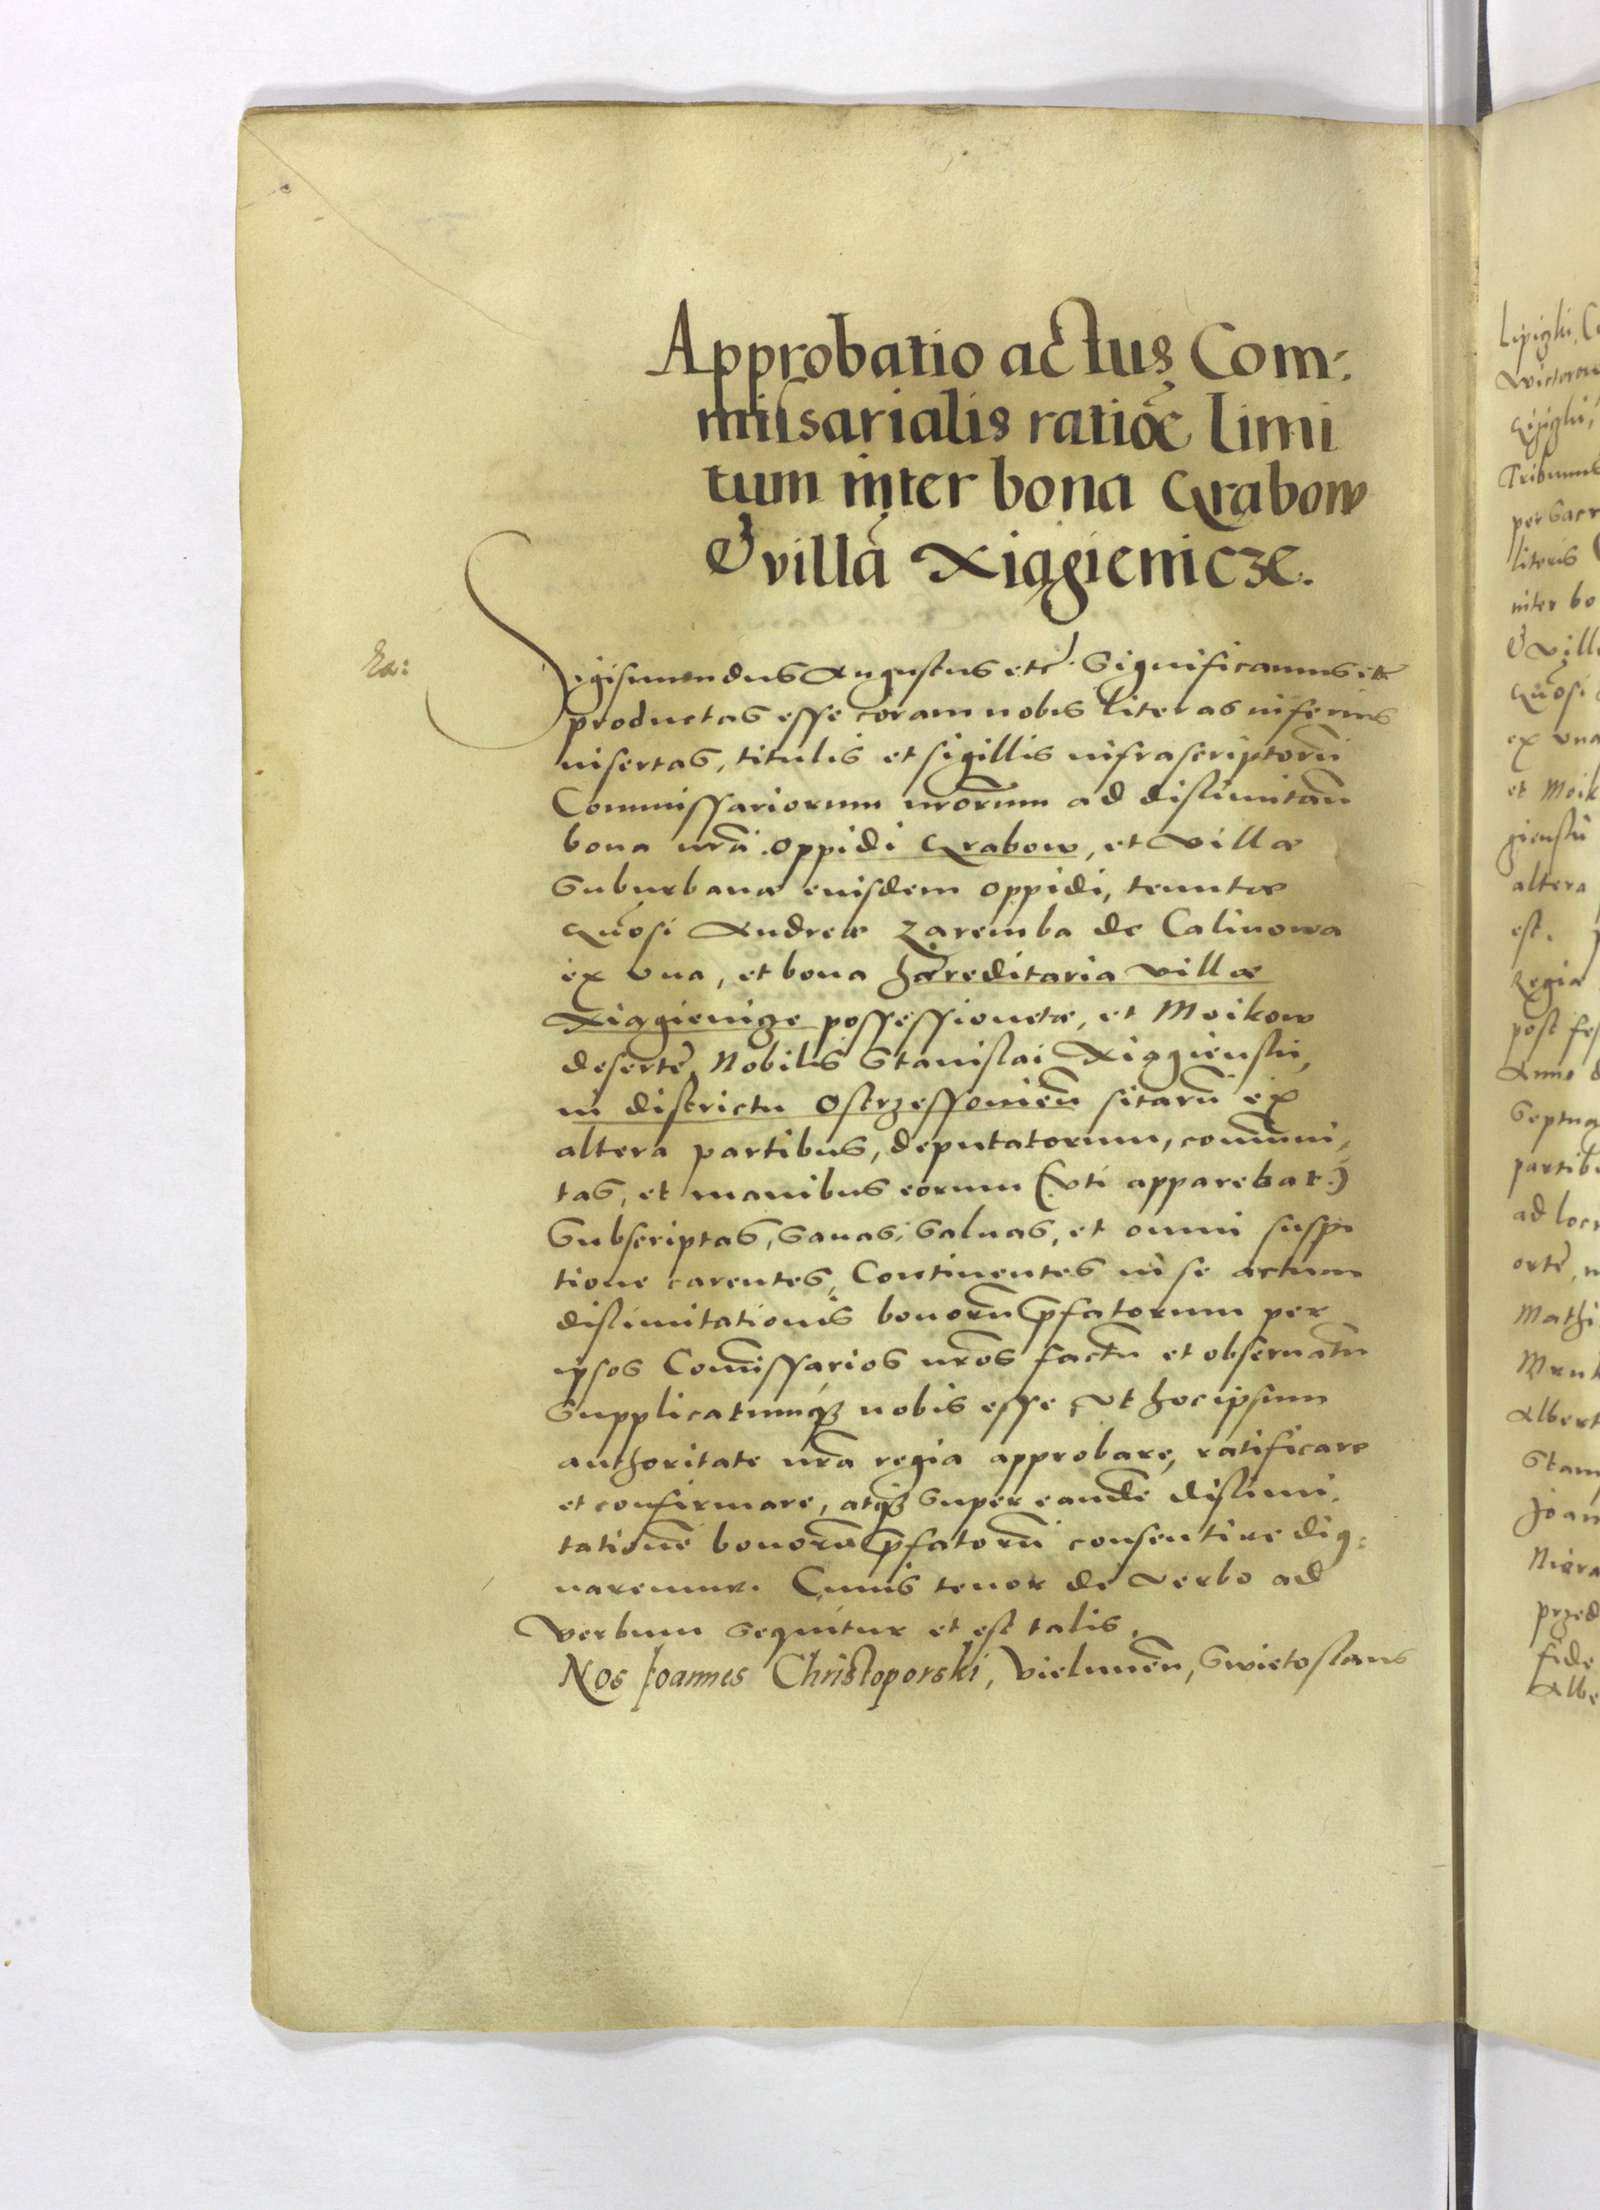 Approbatio actus Com:
missarialis ratiõe Limi
tum inter bona Grabow
& villã Xiąǵienicze.
Ra:
Sigismundus Augustus etc̃. Significamus etc
productas esse coram nobis literas inferius
insertas, titulis et sigillis infrascriptorũ
Commissariorum nrõrum ad dislimitañ
bona nrã oppidi Grabow, et villæ
Suburbanæ eiusdem oppidi, tenutæ
Gñosi Andreæ Zaremba de Calinowa
ex vna, et bona hæreditaria villæ
Xiąǵienicze possessionetæ, et Moikow
desertẽ, Nobilis Stanislai Xiąǵienski,
in districtu Ostrzessovieñ sitarũ ex
altera partibus, deputatorum, comuni,
tas, et manibus eorum (vti apparebat)
Subscriptas, Sanas, Saluas, et omni suspi
tione carentes, Continentes in se actum
dislimitationis bonorũ p̃fatorum per
ipsos Comissarios nrõs factũ et obseruatũ
Supplicatumq3 nobis esse, vt hoc ipsum
authoritate nrã regia approbare, ratificare
et confirmare, atq3 super eandẽ dislimi,
tationẽ bonorũ p̃fatorũ consentire dig:
naremur. Cuius tenor de verbo ad
verbum sequitur et est talis.
Nos Joannes Christoporski, Vieluneñ, Swietoslaus
Lipiczki, C
per Sacr
literis
inter bo
& vill
Gñosi
ex vna
et Moik
altera
est.
Regia
post fes
Anno d
Septua
partib
ad loc
Mathi
Albert
Stani
Joan
przed
fide
Albe